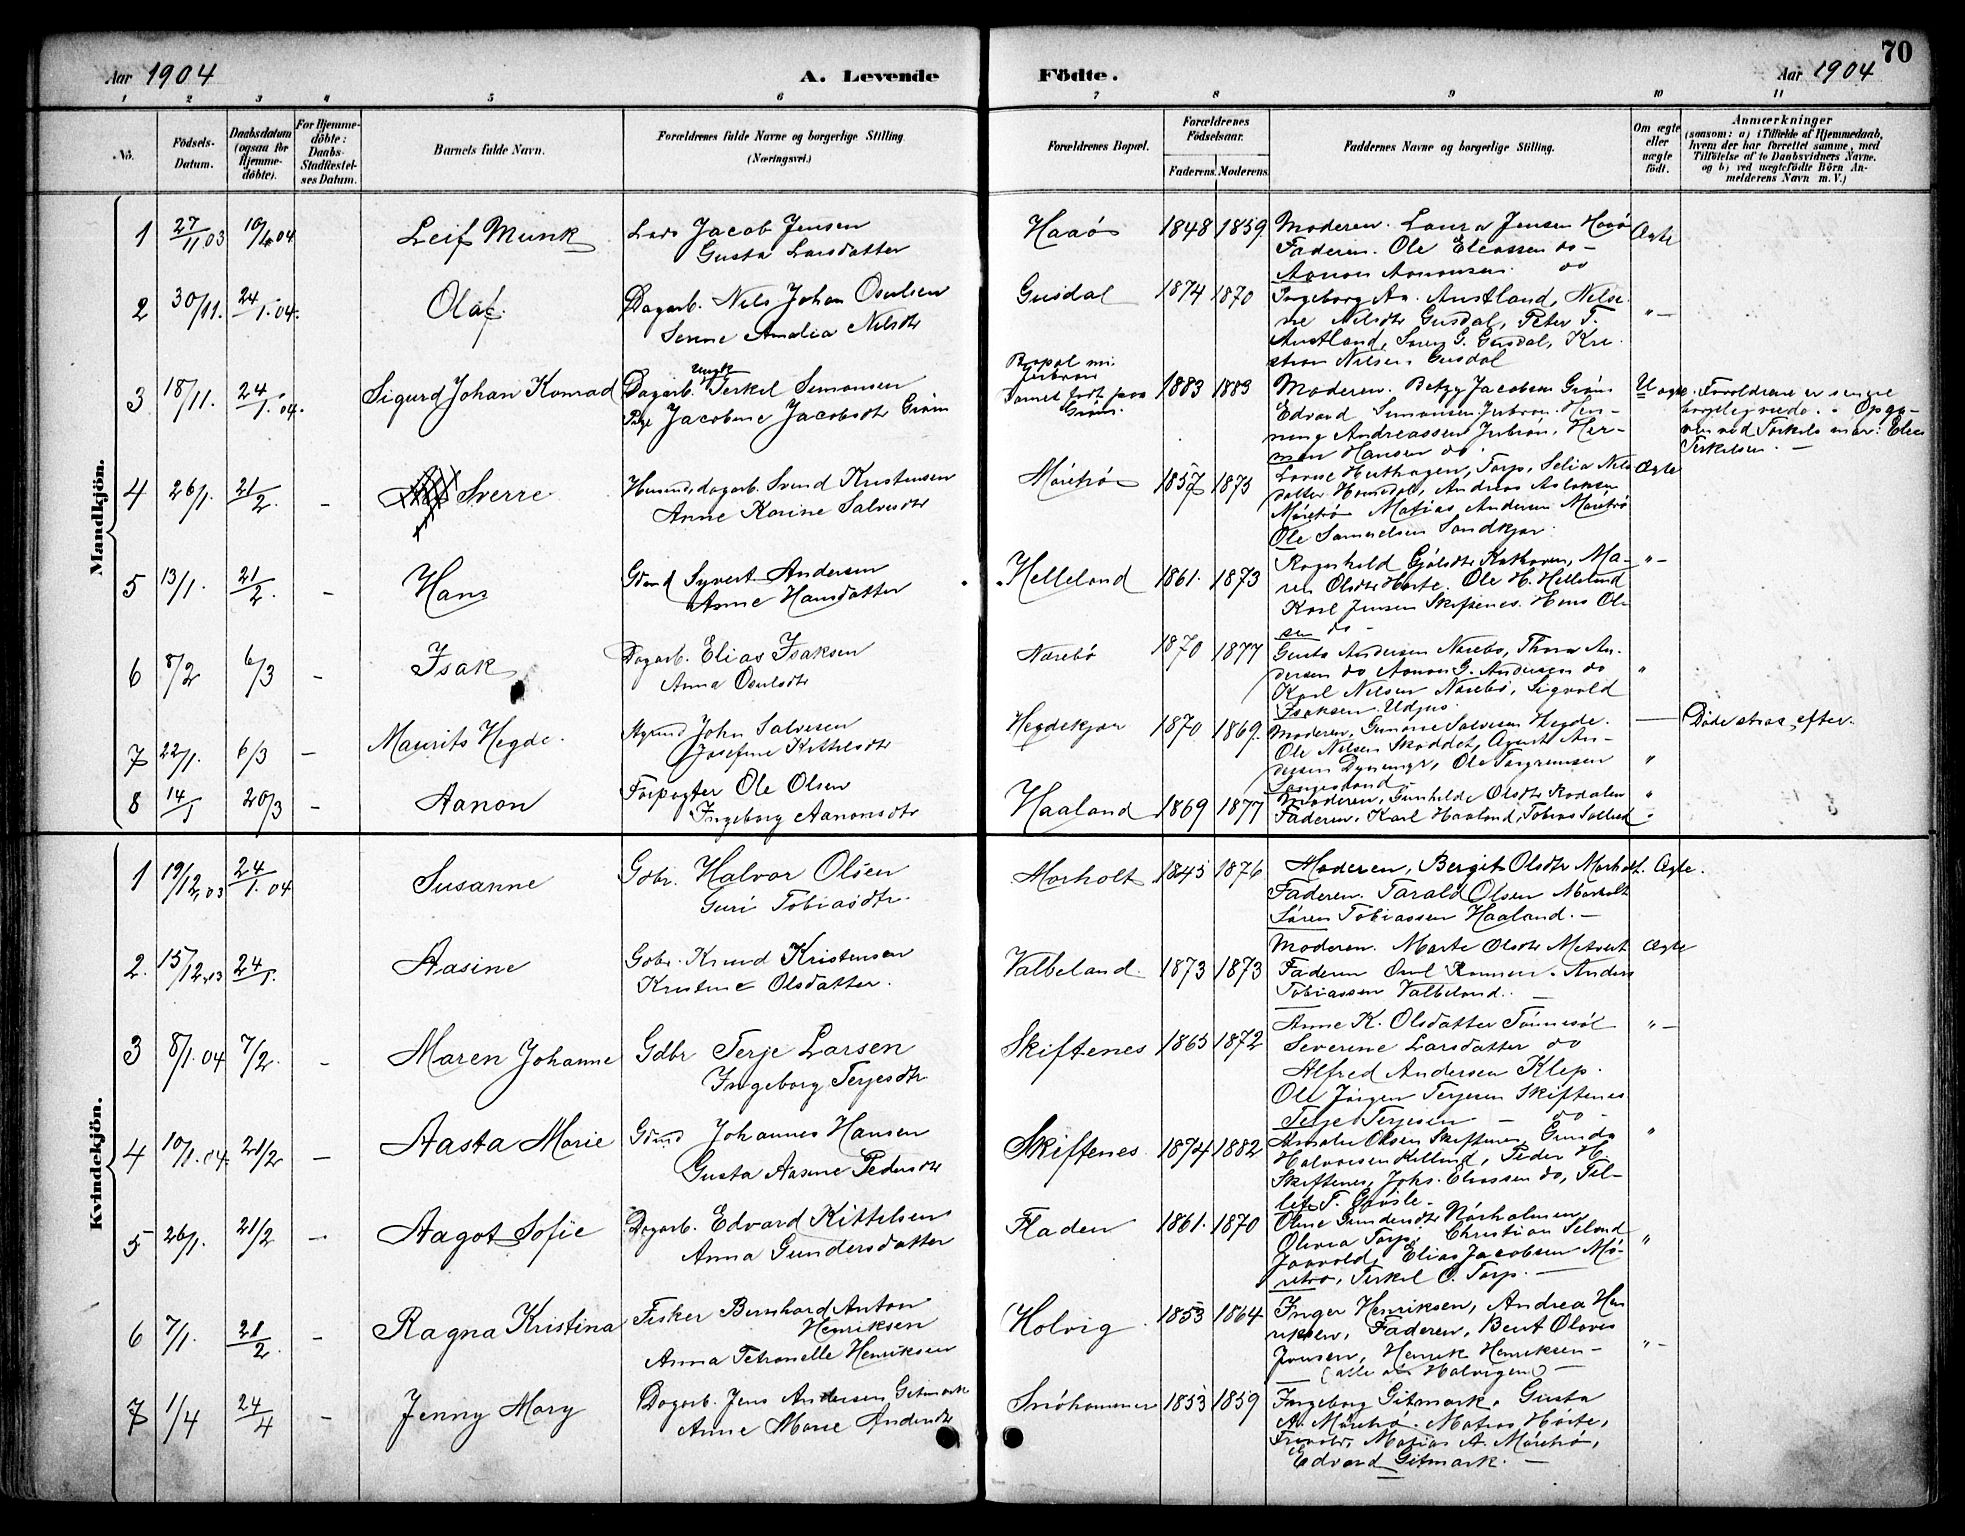 70
Aar 1904
A. Levende
Födte.
Aar 1904
1 2 3 4 5 6 7 8 9 10 11
No.
Födsels-
Datum.
Daabsdatum
(ogsaa for
Hjemme-
döbte).
For Hjemme-
döbte:
Daabs-
Stadfæstel-
ses Datum.
Barnets fulde Navn.
Forældrenes fulde Navne og borgerlige Stilling
(Næringsvei.)
Forældrenes Bopæl.
Forældrenes
Födselsaar.
Faderens. Moderens.
Faddernes Navne og borgerlige Stilling.
Om ægte
eller
uægte
födt.
Anmærkninger
(saasom: a) i Tilfælde af Hjemmedaab,
hvem der har forrettet samme, med
Tilföielse af to Daabsvidners Navne.
og b) ved uægtefödte Börn An-
melderens Navn m. V.)
Mandkjön.
1 27/11 03 10/4 04 Leif Munk
Lars Jacob Jensen
Gusta Larsdatter
Haaö 1848 1859
Moderen. Laura Jensen Haaö
Faderen. Ole Eleassen do -
Aanon Aanonsen do
Ægte
2 30/11. 24/1.04. Olaf
Dagarb. Nils Johan Osulsen
Serine Amalia Nilsdtr
Gusdal 1874 1870
Ingeborg Aa. Austland, Nilse
ne Nilsdtr Gusdal, Peter T.
Austland, Sven G. Gusdal, Kri
stian Nilsen Gusdal
" -
3 18/11. 24/1.04. Sigurd Johan Konrad
Dagarb. Ungk Terkel Simonsen
Pige Jacobine Jacobsdtr Gröm
Gröm.
1883 1883
Moderen. Betzy Jacobsen Gröm
Edvard Simonsen Julron. Hen-
ning Andreassen Julron, Her-
man Hansen do
Uægte.
Forældrene er senere
Terkelsen. -
4 26/1. 21/2. - Sverre
Svend Kristensen
Anne Karine Salvesdtr
Möretrö 1857 1873
Möretrö Matias Andersen Möretrö
Ole Samuelsen Sandkjær.
Ægte
5 13/1. 21/2. - Hans
Gdmd Syvert Andersen
Anne Hansdatter
Helleland 1861. 1873
Ragnhild
ren Olsdtr Horte. Ole H. Helleland
Karl Jensen Skiftenes. Hans Ol-
sen do -
" -
6 8/2 6/3 - Isak
Dagarb. Elias Isaksen
Anna Osulsdtr
Narebö 1870 1877
Gusta Andersen Narebö, Thora An-
dersen do Aanon G. Andersen do
Karl Nilsen Narebö, Sigvald
Isaksen Udjus.
"
7 22/1. 6/3 - Maurits Hegde.
John Salvesen
Josefine Kittelsdtr
Hegdekjær 1870 1869.
Moderen, Gunarie Salvesen Hegde.
Ole Nilsen Skoddet, Agent An-
Ole Torgrimsen
Döde strax efter.
8 14/1 20/3 - Aanon
Forpagter Ole Olsen
Ingeborg Aanonsdtr
Haaland 1869 1877
Moderen, Gunhilde Olsdtr Rodalen
Faderen, Karl Haaland, Tobias
"
Kvindekjön.
1 19/12,03 24/1.04 Susanne
Gdbr. Halvor Olsen
Guri Tobiasdtr.
Morholt 1845 1876
Moderen, Bergit Olsdtr Morholt.
Faderen. Tarald Olsen Morholt
Sören Tobiassen Haaland. -
Ægte.
2. 15/12,03 24/1. Aasine
Gdbr. Knud Kristensen
Kristine Olsdatter.
Valbeland. 1873 1873
Moderen. Marte Olsdtr Metveit
Faderen Anders
Tobiassen Valbeland. -
Ægte
3 8/1.04 7/2. - Maren Johanne
Gdbr Terje Larsen
Ingeborg Terjesdtr
Skiftenes 1865 1872
Anne K. Olsdatter Tönnesöl
Severine Larsdatter do
Alfred Andersen Klep.
Ole Jörgen Terjesen Skiftenes
Terje Terjesen - do -
" -
4 10/1.04. 21/2 - Aasta Marie
Gdmd Johannes Hansen
Gusta Aasine Pedersdtr
Skiftenes. 1874 1882
Amalie Olsen Skiftenes, Gunda
Halvorsen Killand, Peder H.
Skiftenes, Johs. Eliassen do, Tel-
lef T. Gjösle.
"
5 26/1. 21/2 - Aagot Sofie
Dagarb. Edvard Kittelsen
Anna Gundersdatter
Fladen 1861. 1870
Oline Gundersdtr Nörholmen
Olivia Torp, Christian Seland
Jaavold, Elias Jacobsen Mö-
retrö, Terkel O. Torp. -
"
6 7/1. 21/2. - Ragna Kristina
Fisker Bernhard Anton
Henriksen
Anna Petronelle Henriksen
Holvig. 1853 1864
Inger Henriksen, Andrea Hen
riksen, Faderen, Bent Olaves
Jensen, Henrik Henriksen -
(alle av Holvigen) -
" -
7 1/4 24/4 - Jenny Mary
Dagarb. Jens Andersen Gitmark
Anne Marie Andersdtr
Snöhammer 1853 1859
Ingeborg Gitmark. Gusta
A. Möretrö. Matias Hörte,
Matias A. Möretrö,
Edvard Gitmark. -